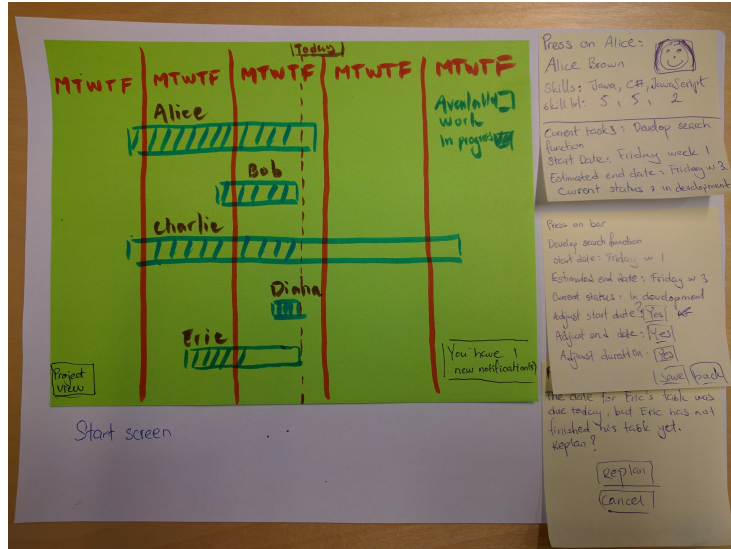 Today
MTWTF MTWTF MTWTF MTWTF MTWTF
Alice
Available
work
In progress
Bob
Charlie
Diana
Eric
Project
view
You have 1
new notification(s)
Start screen
Press on Alice:
Alice Brown
Skills: Java, C#, JavaScript
skill lvl: 5, 5, 2
Current tasks: Develop search
function
Start Date: Friday week 1
Estimated end date: Friday w 3
Current status: in development
Press on bar
Develop search function
start date: Friday w 1
Estimated end date: Friday w 3
Current status: In development
Adjust start date? Yes
Adjust end date: Yes
Adjust duration: Yes
Save back
The date for Eric's table was
due today, but Eric has not
finished his table yet.
Replan?
Replan
Cancel